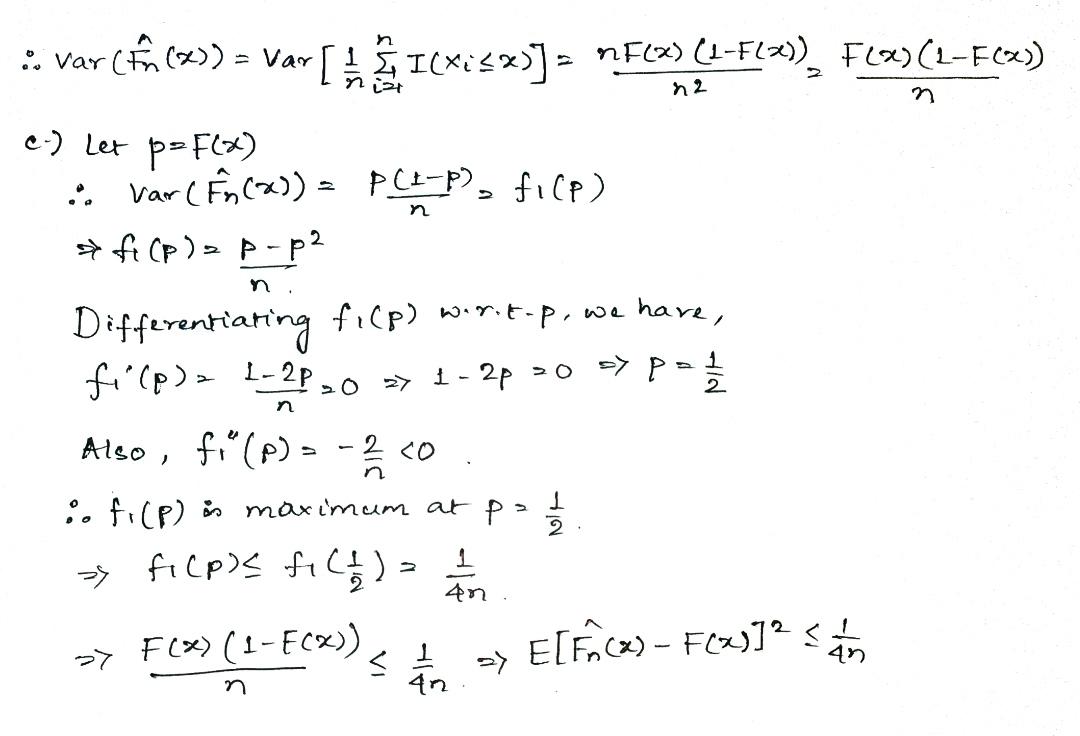 ∴ Var(F̂n(x)) = Var[1/n Σ_{i=1}^{n} I(Xi≤x)] = nF(x)(1-F(x))/n² = F(x)(1-F(x))/n
c-) Let p=F(x)
∴ Var(F̂n(x)) = P(1-P)/n = f₁(P)
⇒ f₁(p) = p-p²/n.
Differentiating f₁(p) w.r.t-p, we have,
f₁'(p) = 1-2p/n = 0 ⇒ 1-2p = 0 ⇒ p = 1/2
Also, f₁"(p) = -2/n <0.
∴ f₁(p) is maximum at p = 1/2.
⇒ f₁(p) ≤ f₁(1/2) = 1/4n.
⇒ F(x)(1-F(x))/n ≤ 1/4n. ⇒ E[F̂n(x) - F(x)]² ≤ 1/4n